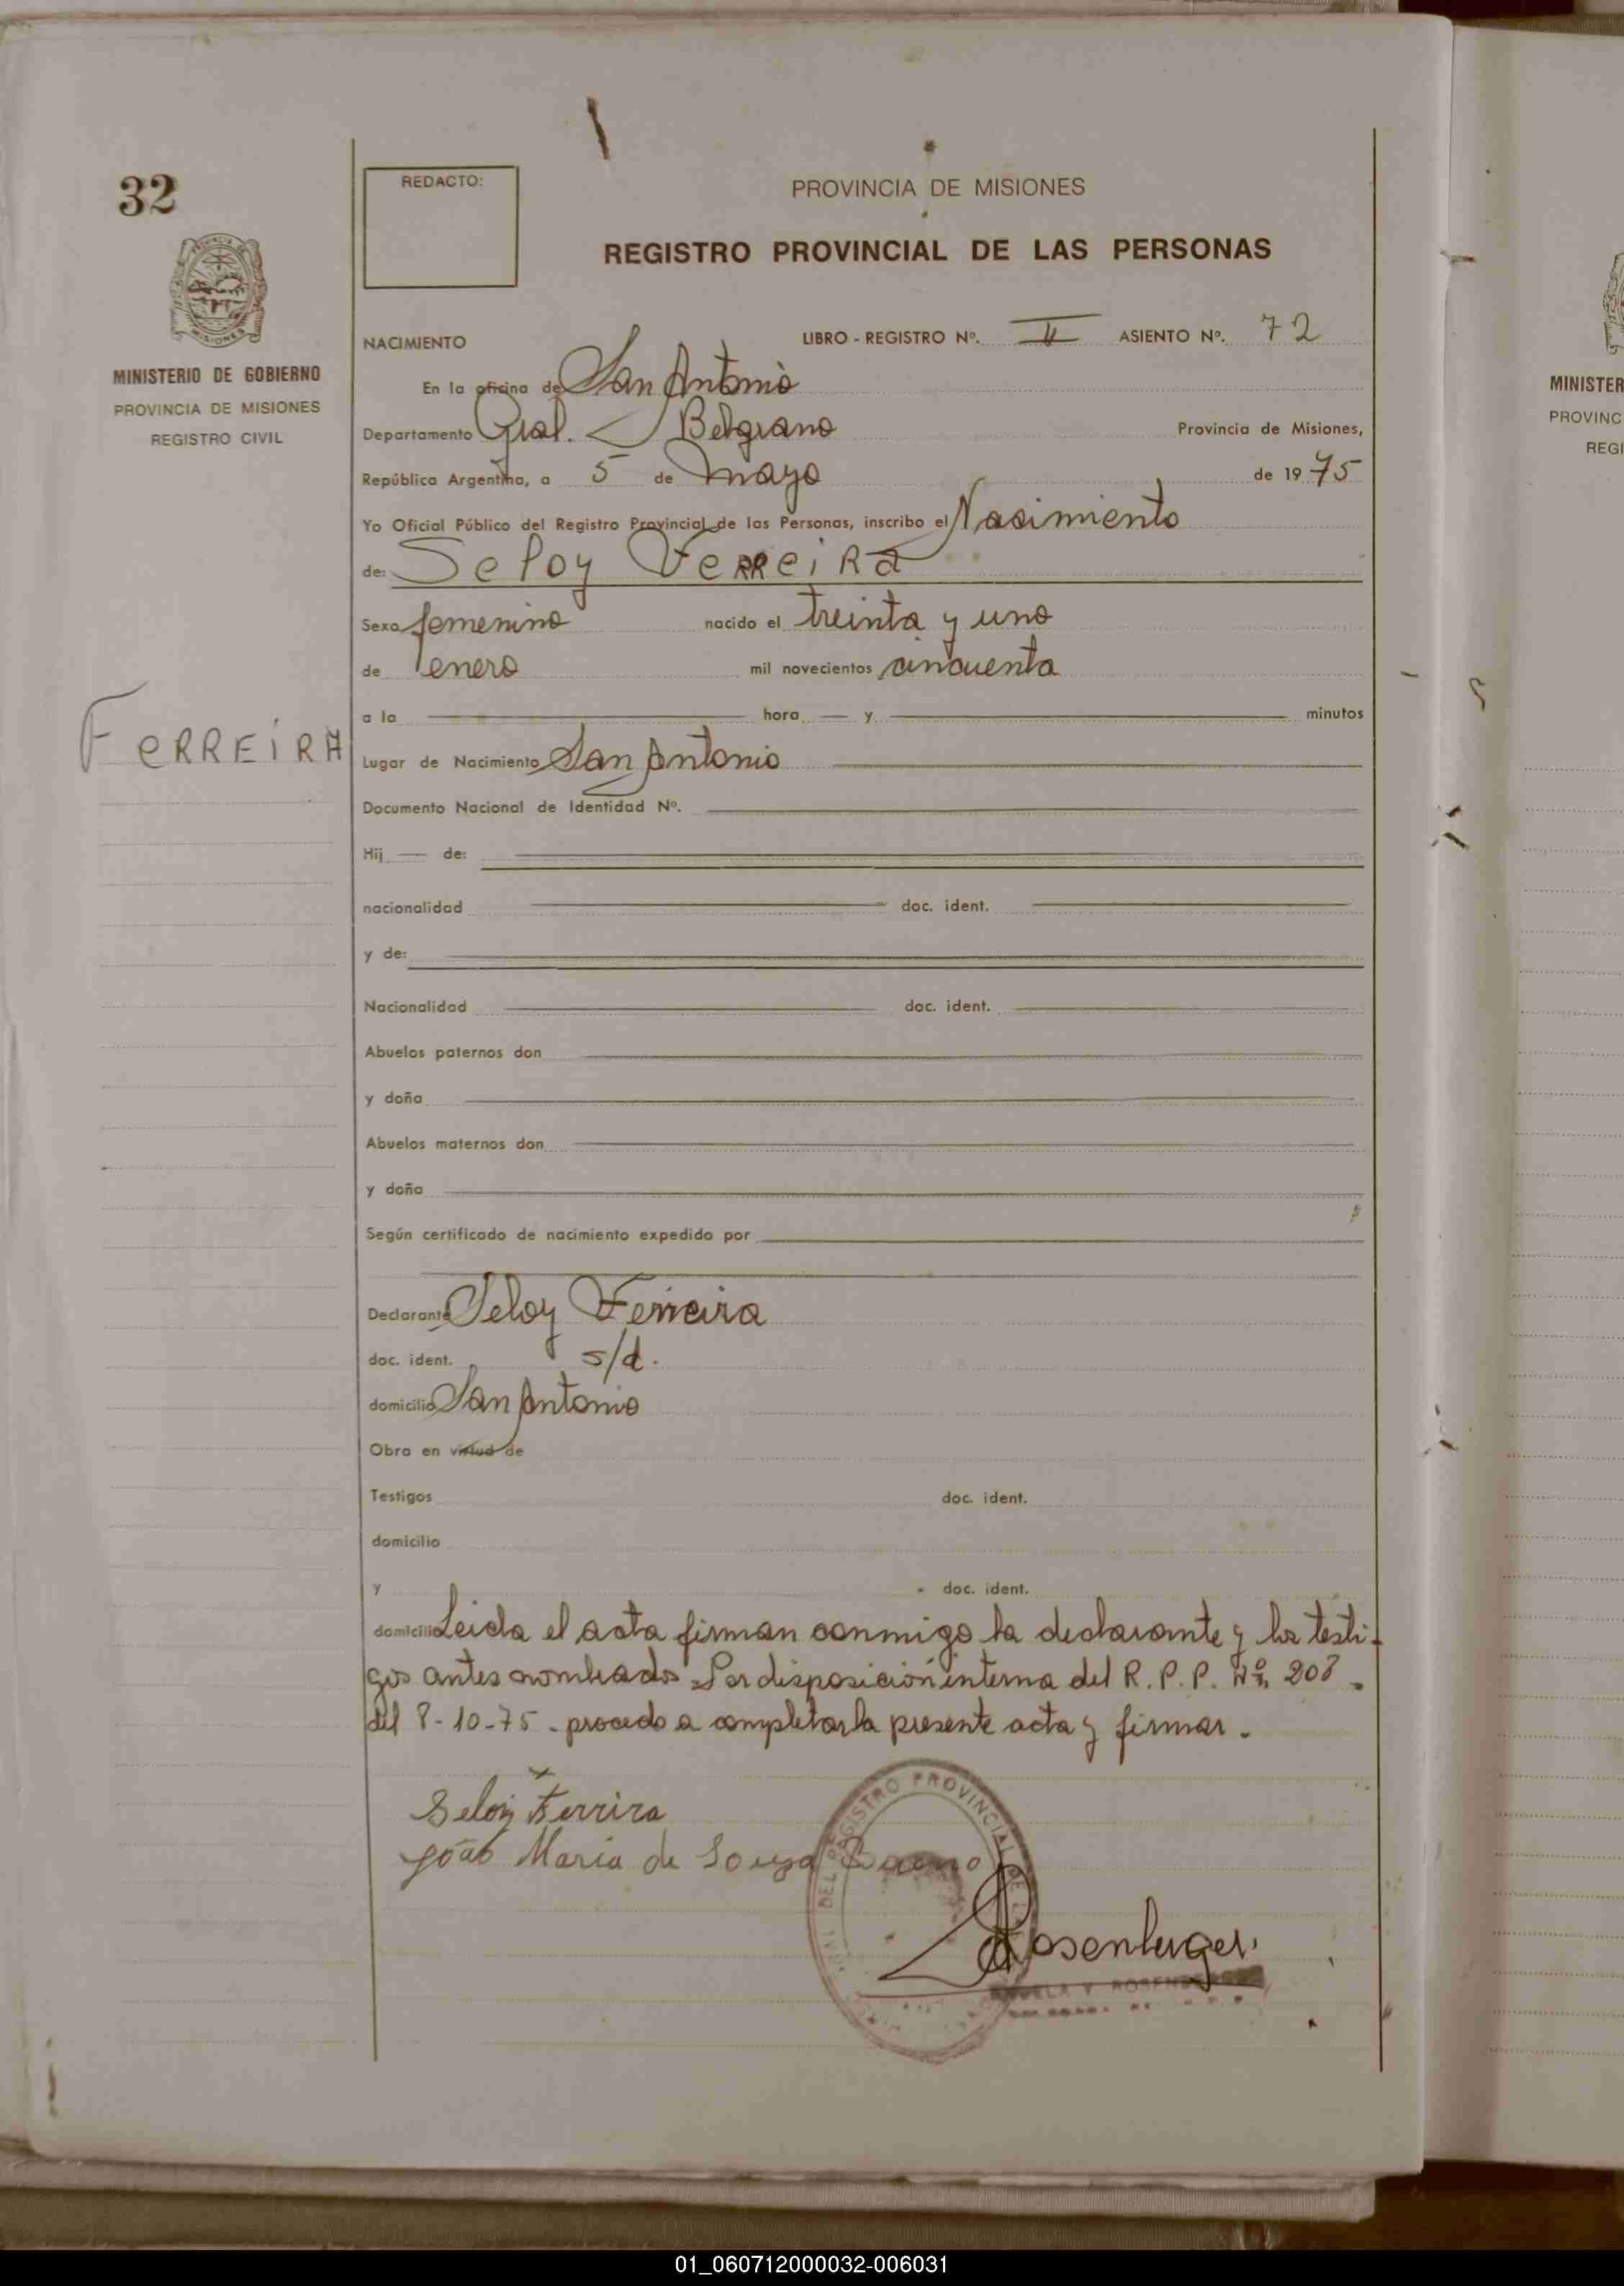 32
REDACTO:
PROVINCIA DE MISIONES
REGISTRO PROVINCIAL DE LAS PERSONAS
MINISTERIO DE GOBIERNO
PROVINCIA DE MISIONES
REGISTRO CIVIL
NACIMIENTO LIBRO - REGISTRO Nº. II ASIENTO Nº. 72
En la oficina de San Antonio
Departamento Gral. Belgrano Provincia de Misiones,
República Argentina, a 5 de mayo de 1975
Yo Oficial Público del Registro Provincial de las Personas, inscribo el Nacimiento
de: Seloy Ferreira
Sexo femenino nacido el treinta y uno
de enero mil novecientos cincuenta
a la hora y minutos
FERREIRA
Lugar de Nacimiento San Antonio
Documento Nacional de Identidad Nº.
Hij de:
nacionalidad doc. ident.
y de:
Nacionalidad doc. ident.
Abuelos paternos don
y doña
Abuelos maternos don
y doña
Según certificado de nacimiento expedido por
Declarante Seloy Ferreira
doc. ident. s/d.
domicilio San Antonio
Obra en virtud de
Testigos doc. ident.
domicilio
y doc. ident.
domicilio Leida el acta firman conmigo la declarante y los testi-
gos antes nombrados. Por disposición interna del R. P. P. Nº 208.
del 8-10-75 - procedo a completar la presente acta y firmar.
Seloy Ferrira
João Maria de Souza
REGISTRO PROVINCIAL DE
MINISTER
PROVINC
REGI
01_060712000032-006031